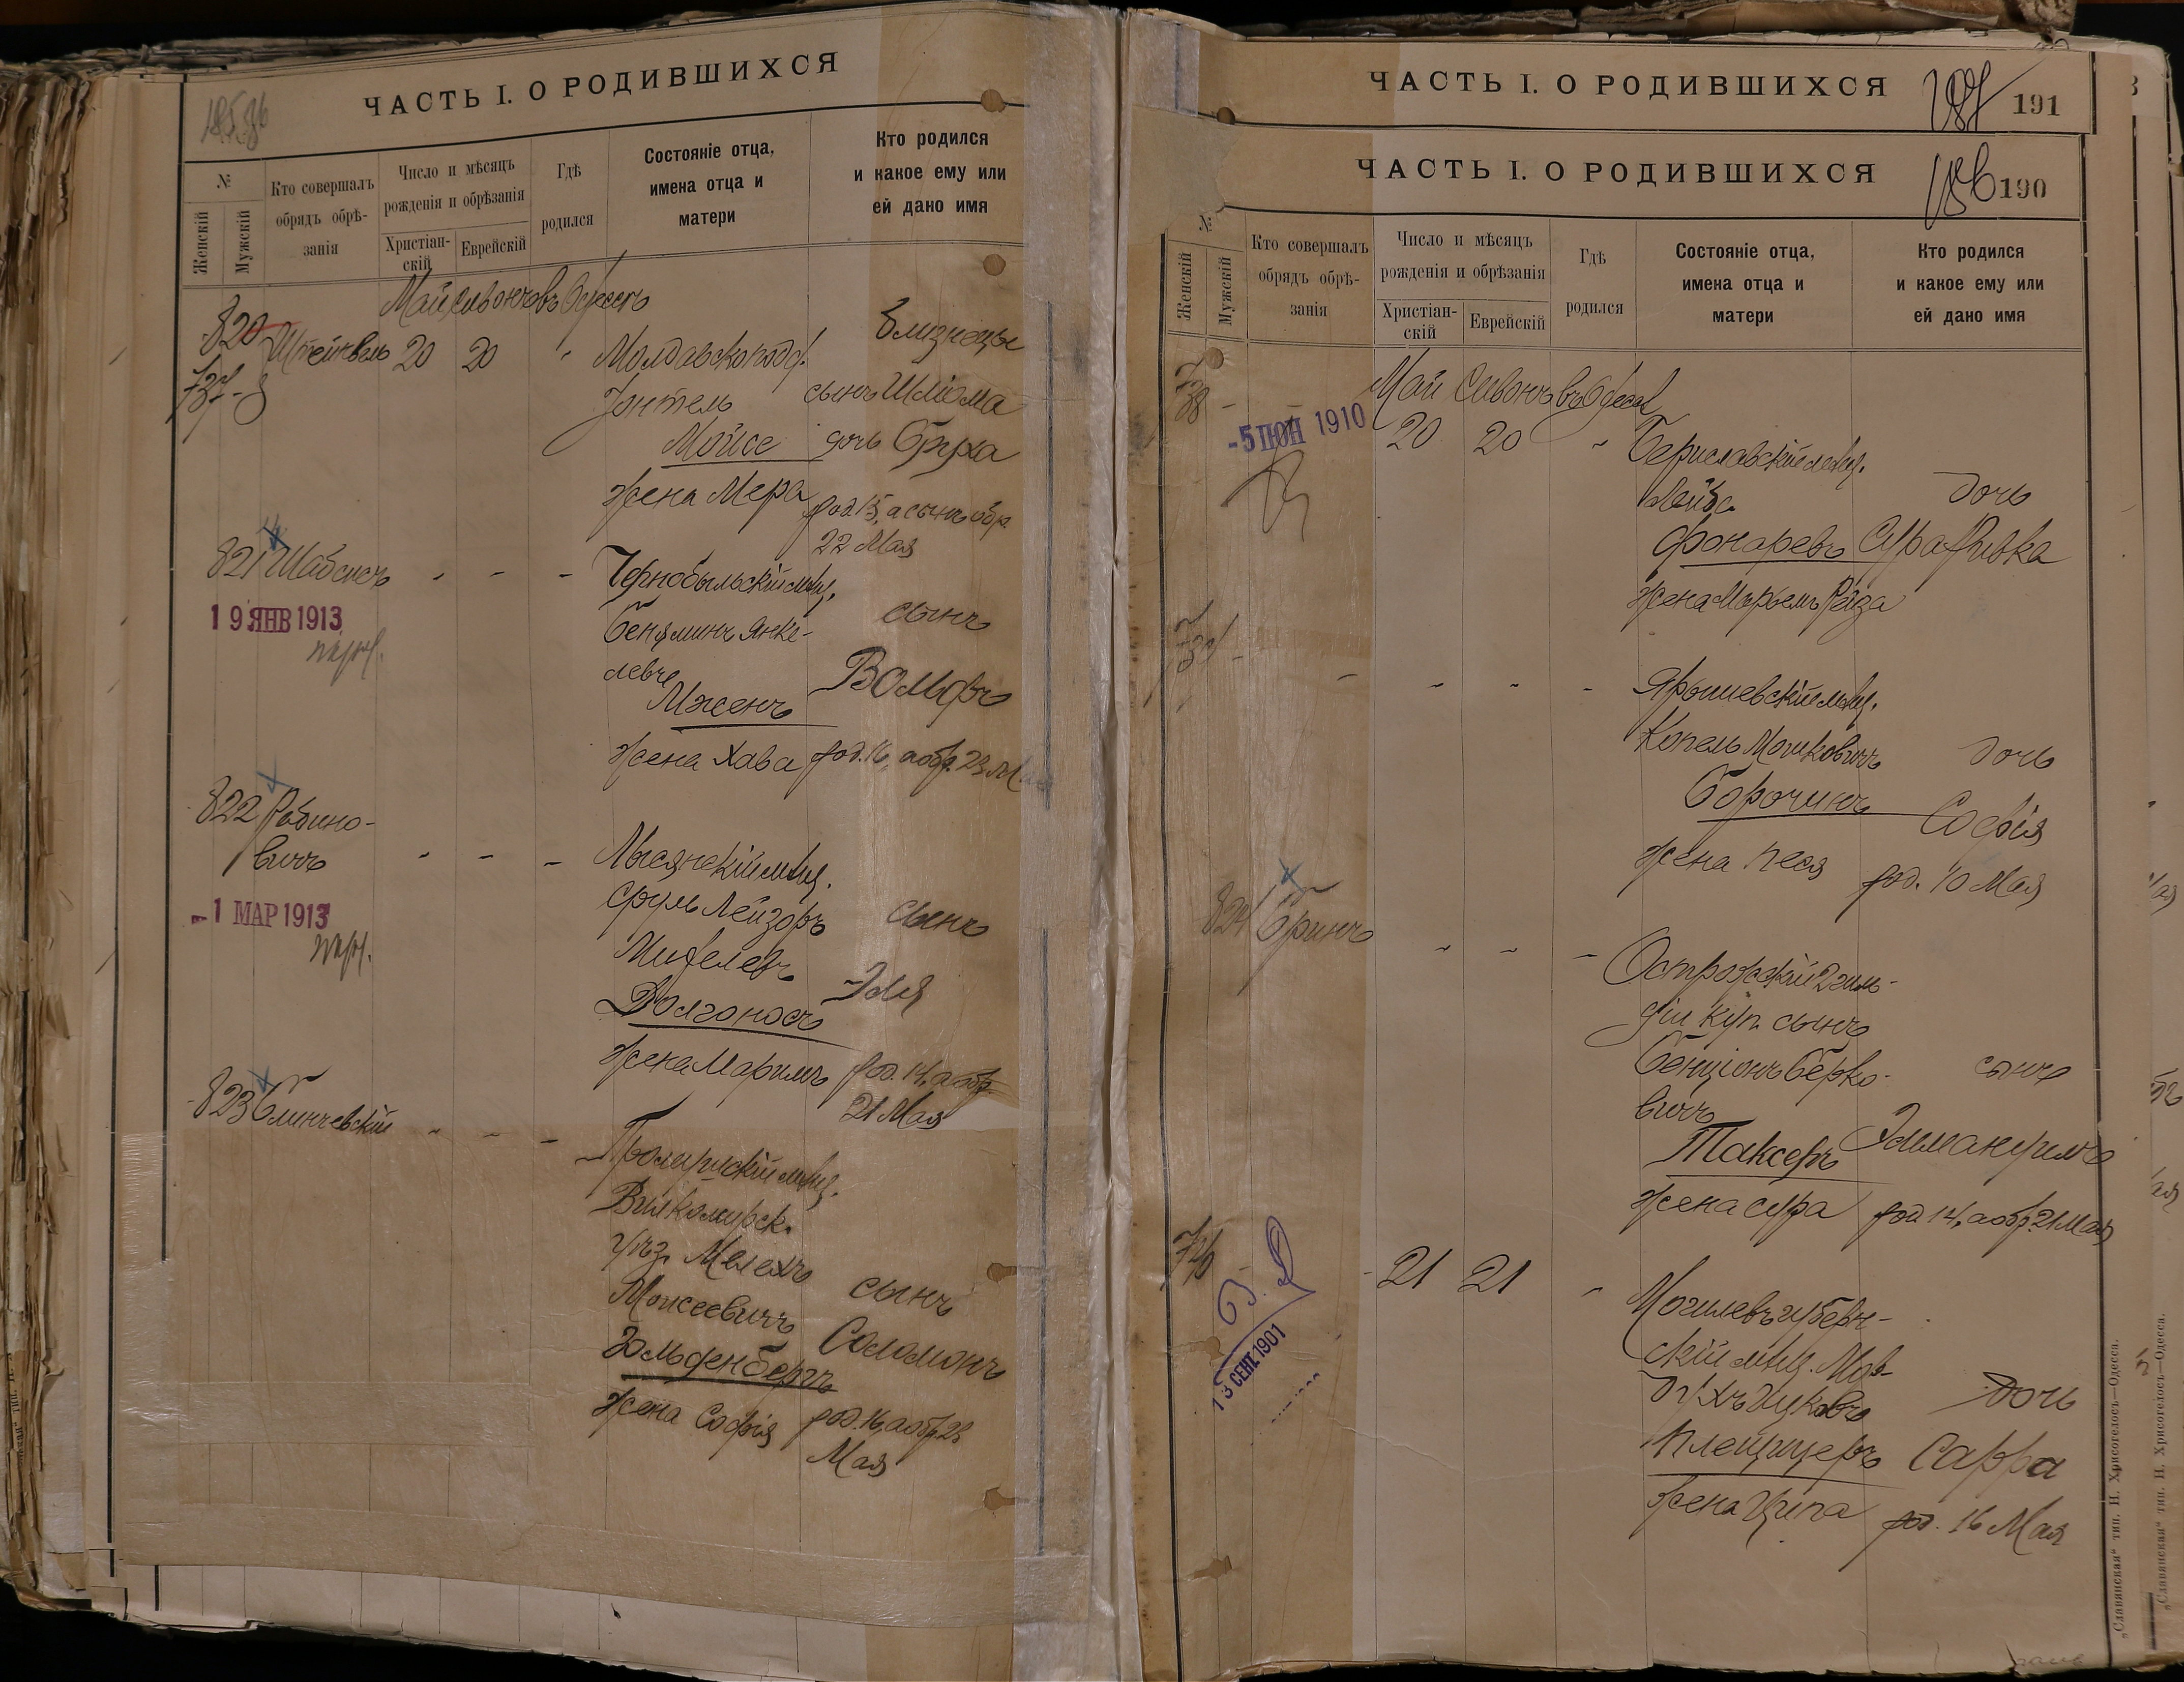 ЧАСТЬ I. О РОДИВШИХСЯ
№
Женскій
Мужскій
Кто совершалъ
обрядъ обрѣ-
занія
Число и мѣсяцъ
рожденія и обрѣзанія
Христіан-
скій
Еврейскій
Гдѣ
родился
Состояніе отца,
имена отца и
матери
Кто родился
и какое ему или
ей дано имя
Май Сивонъ въ Одессѣ
близнецы
820 Штейнвель 20 20 " Молдавскоподд.
737
Іонтель сынъ Шліома
Мойсе дочь Бруха
жена Мера род. 15, а сынъ обр.
22 Мая
821 Шабсисъ - - - Чернобыльскій мѣщ.
19 ЯНВ 1913
Беньяминъ Янке- сынъ
левъ
Мженъ Вольфъ
жена Хава род. 16, а обр. 23 М
822 Рабино-
вичъ - - - Лысянскій мѣщ.
-1 МАР 1913
Сруль Лейзоръ сынъ
Михелевъ
Долгоносъ Эля
жена Маримъ род. 14, а обр.
21 Мая
823 Блинчевскій - - -
мѣщ.
Вилкомирск.
уѣз. Мелехъ сынъ
Моисеевичъ
Гольденбергъ Соломонъ
жена Софія род. 16, а обр. 23
Мая
ЧАСТЬ I. О РОДИВШИХСЯ
187 191
ЧАСТЬ I. О РОДИВШИХСЯ
186 190
№
Женскій
Мужскій
Кто совершалъ
обрядъ обрѣ-
занія
Число и мѣсяцъ
рожденія и обрѣзанія
Христіан-
скій
Еврейскій
Гдѣ
родился
Состояніе отца,
имена отца и
матери
Кто родился
и какое ему или
ей дано имя
738 - Май Сивонъ въ Одессѣ
-5 ІЮН 1910
20 20 " Бериславскій мѣщ.
Лейба дочь
Фонаревъ Сура Ривка
жена Марьемъ Рейза
739 - - - - - Ярышевскій мѣщ.
Копель Мошковичъ дочь
Борочинъ Софія
жена Песя род. 10 Мая
824 Бринъ - - - Острожскій 2 гиль-
діи куп. сынъ
Бенціонъ Берко- сынъ
вичъ
Таксеръ Эммануилъ
жена Сура род 14, а обр. 21 Мая
740 - 21 21 " Могилевъ губерн-
скій мѣщ. Мор-
духъ Ицковъ дочь
13 СЕНТ. 1901
Плейщеръ Сарра
жена Ципа род. 16 Мая
„Славянская“ тип. Н. Хрисогелосъ—Одесса.
„Славянская“ тип. Н. Хрисогелосъ—Одесса.